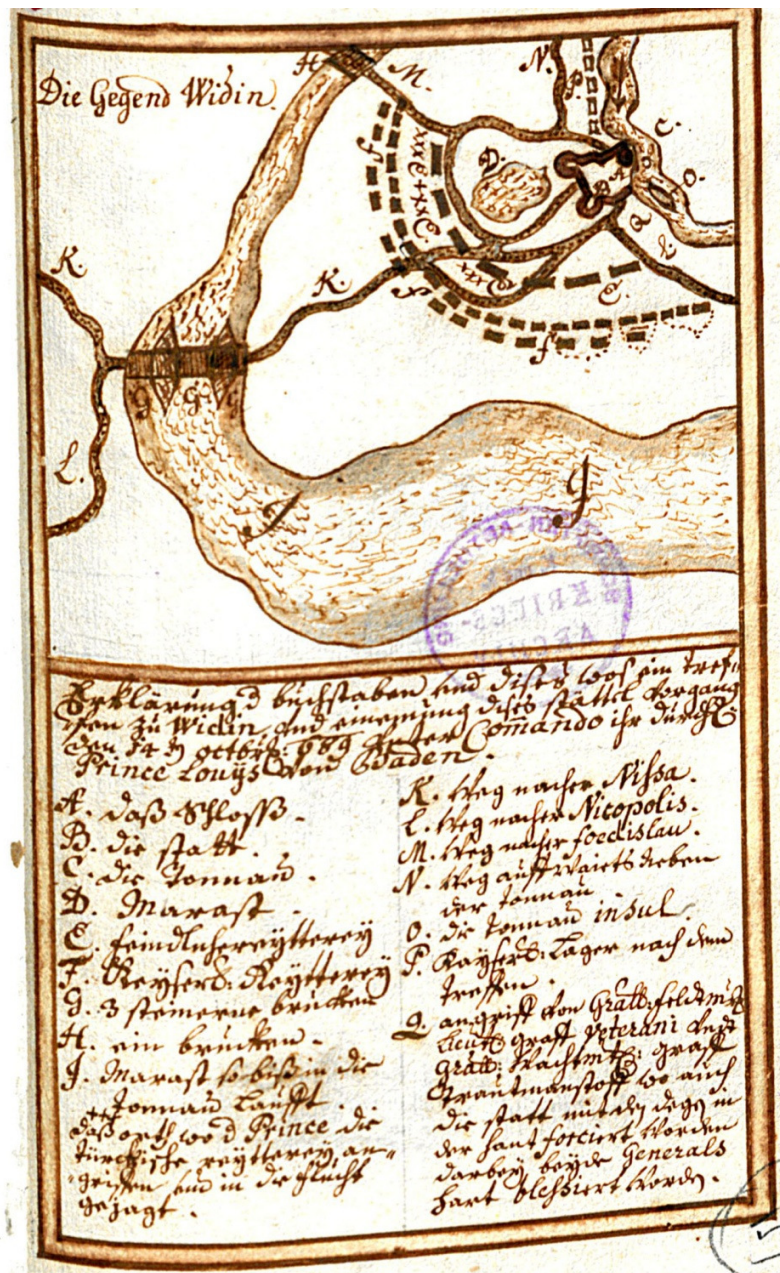 Die Gegend Widin.
H.
M.
N.
P.
C.
f
D.
A
B
O.
xxx E. xxx
Q
L
K.
K.
f
xxx
E.
f
G
G
G
L.
J
J
Erklärung d buchstaben und dises was im tref-
fen zu Widin und einemung dises stättel vorgang
den 14 octobr: 689 unter Commando ihr durchl:
Prince Louys von Baden.
A. daß Schloss.
B. die statt.
C. die Donnau.
D. Marast.
E. feindliche reytterey
F. Keysers: Reytterey
G. 3 steinerne brucken
H. ein brucken.
J. Marast so biß in die
Donnau laufft.
xxx daß orth wo d Prince die
türckische reytterey an-
griffen und in die flucht
gejagt.
K. Weg nacher Nissa.
L. Weg nacher Nicopolis.
M. Weg nacher
N. Weg auffwarts neben
der Donnau.
O. die Donnau insul.
P. Kaysers: Lager nach dem
treffen.
Q. angriff von Grall: feldm:
lieut: graff Veterani und
Grall: Wachtm: graff
Trautmanstorff wo auch
die statt mit den degen in
der hant forciert worden
darbey beyde Generals
hart blessiert worden.